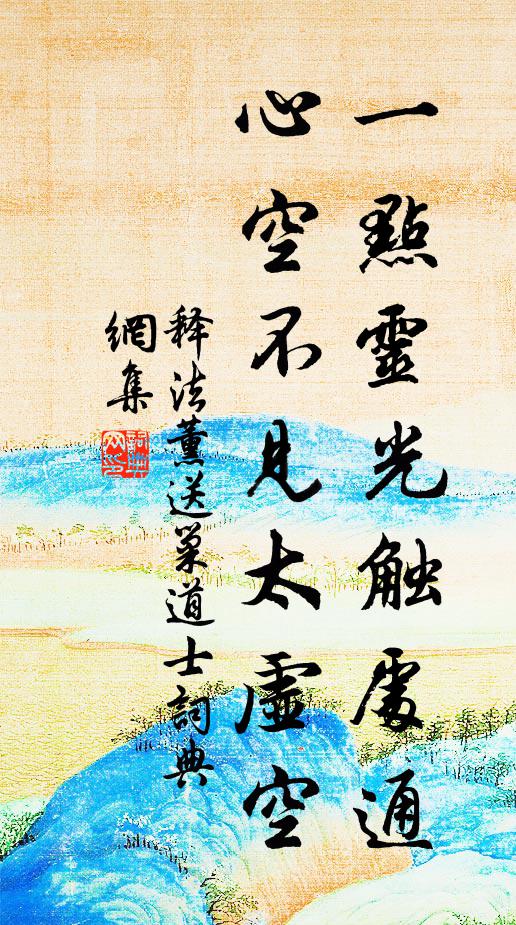 一點靈光触處通
心空不見太虛空
释法薰送巢道士詞典
網集